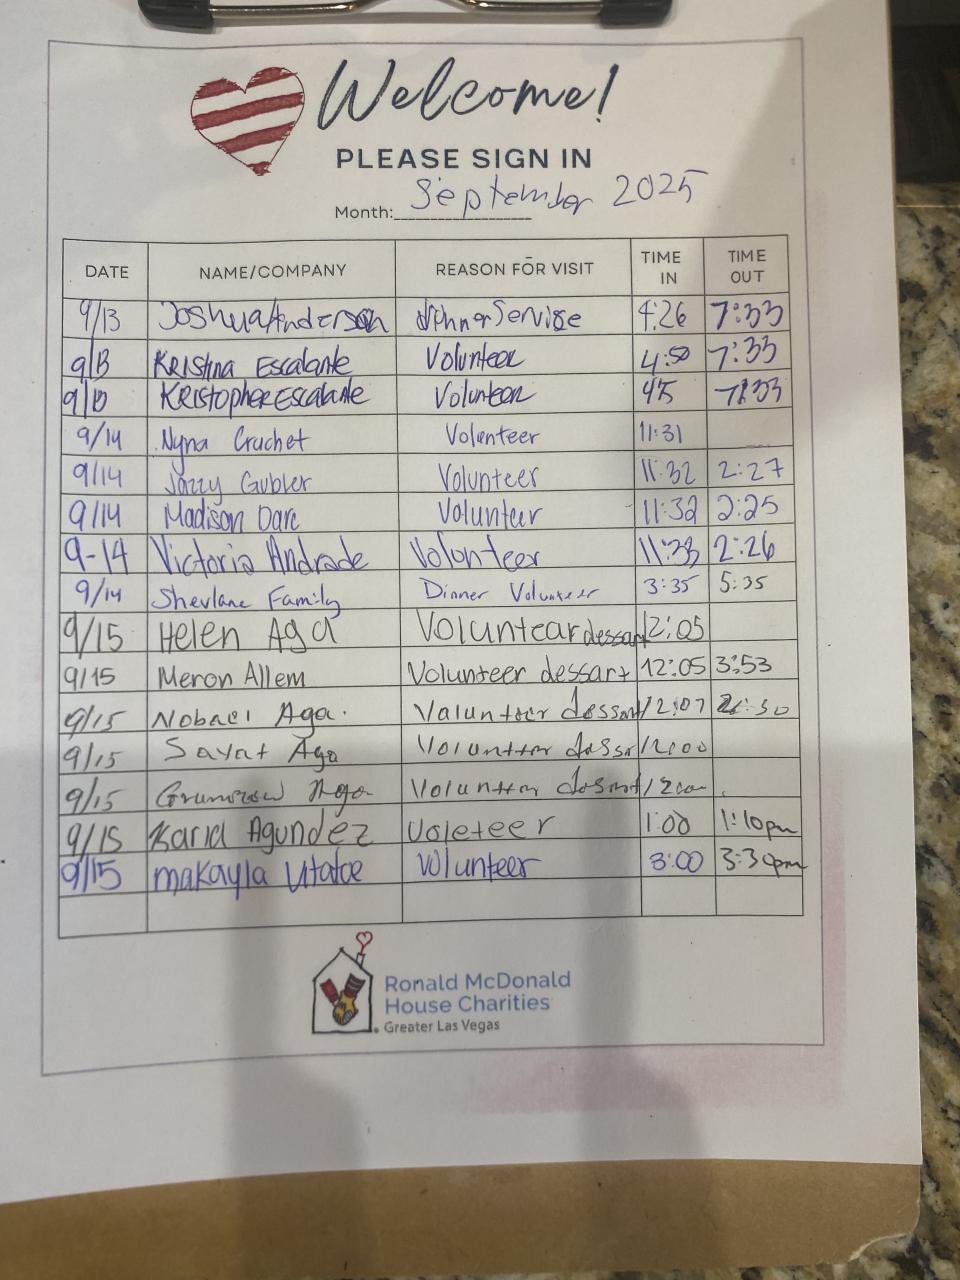 Welcome!
PLEASE SIGN IN
Month: September 2025
DATE NAME/COMPANY REASON FOR VISIT TIME IN TIME OUT
9/13 Joshua Anderson dinner Service 4:26 7:33
9/13 Kristina Escalante Volunteer 4:50 7:33
9/13 Kristopher Escalante Volunteer 45 7:33
9/14 Nyna Cruchet Volenteer 11:31
9/14 Jazzy Gubler Volunteer 11:32 2:27
9/14 Madison Dare Volunteer 11:32 2:25
9-14 Victoria Andrade Volonteer 11:33 2:26
9/14 Shevlane Family Dinner Volunteer 3:35 5:35
9/15 Helen Aga Voluntear dessart 12:05
9/15 Meron Allem Volunteer dessart 12:05 3:53
9/15 Aga. Valunteer dessart 12:07
9/15 Aga Volunteer 12:00
9/15 Aga
9/15 Karla Agundez Voleteer 1:00 1:10pm
9/15 makayla Volunteer 3:00 3:30pm
Ronald McDonald
House Charities
Greater Las Vegas